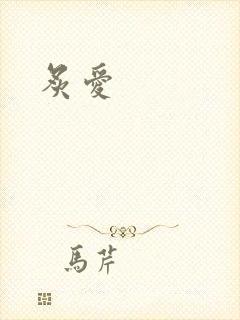 炙愛
馬芹